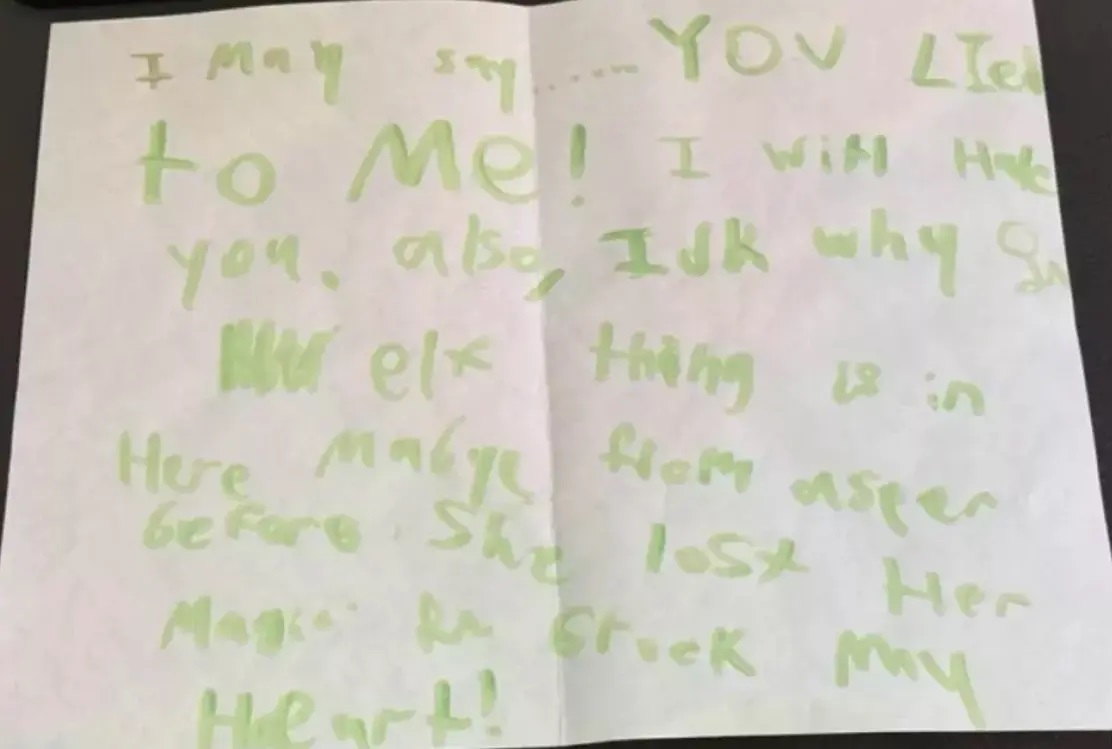 I may say...... YOU LIed
to Me! I will Hate
you. also, Idk why
elx thing is in
Here Mabye from aspen
before She lost Her
Magic Br Brock my
Heart!